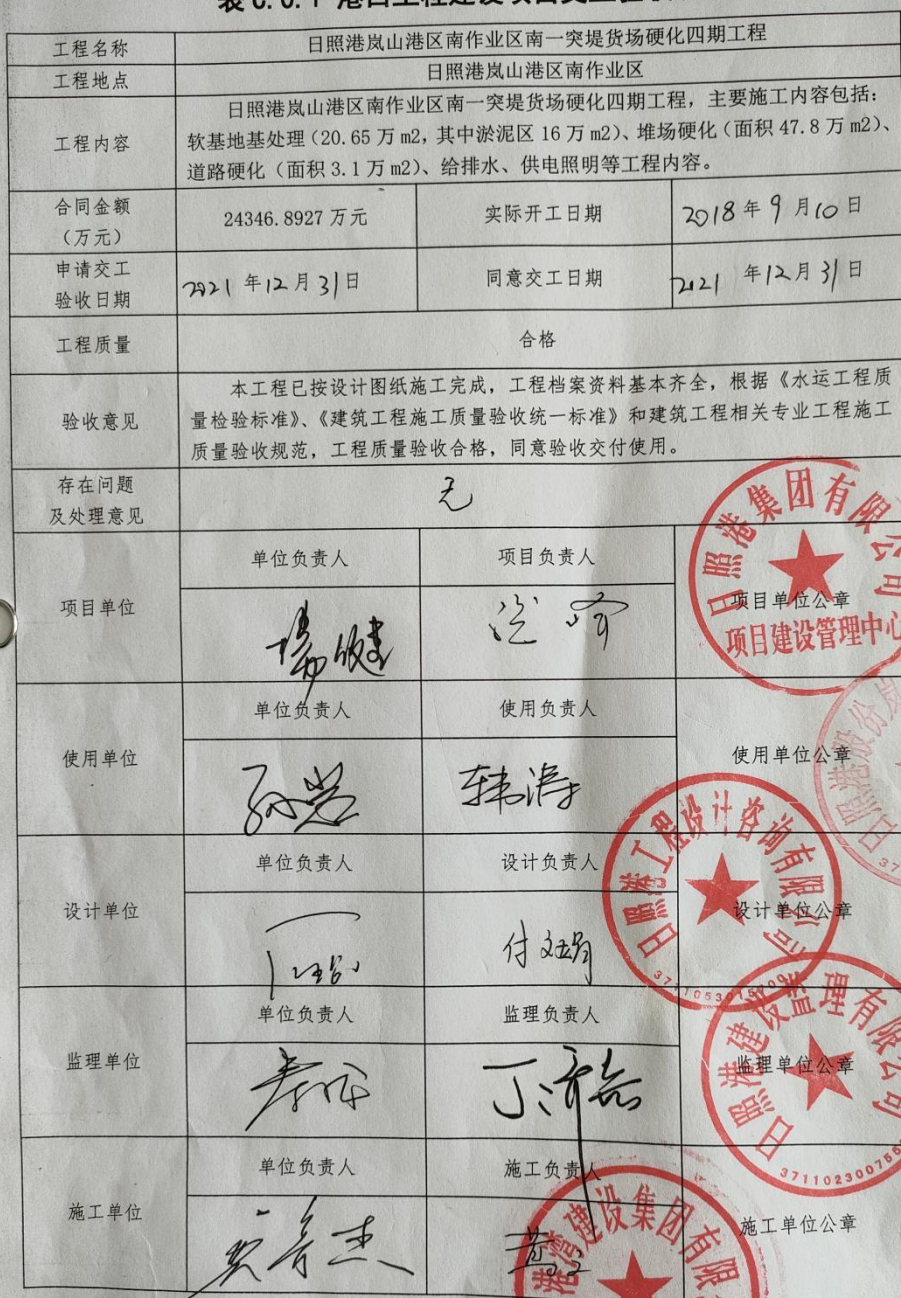 表 C.0.1 港口工程建设项目交工验收
工程名称
日照港岚山港区南作业区南一突堤货场硬化四期工程
工程地点
日照港岚山港区南作业区
工程内容
日照港岚山港区南作业区南一突堤货场硬化四期工程，主要施工内容包括：
软基地基处理（20.65 万 m2，其中淤泥区 16 万 m2）、堆场硬化（面积 47.8 万 m2）、
道路硬化（面积 3.1 万 m2）、给排水、供电照明等工程内容。
合同金额
（万元）
24346.8927 万元
实际开工日期
2018 年 9 月 10 日
申请交工
验收日期
2021 年 12 月 31 日
同意交工日期
2021 年 12 月 31 日
工程质量
合格
验收意见
本工程已按设计图纸施工完成，工程档案资料基本齐全，根据《水运工程质
量检验标准》、《建筑工程施工质量验收统一标准》和建筑工程相关专业工程施工
质量验收规范，工程质量验收合格，同意验收交付使用。
存在问题
及处理意见
无
项目单位
单位负责人
项目负责人
项目单位公章
日照港集团有限公司
项目建设管理中心
使用单位
单位负责人
使用负责人
韩涛
使用单位公章
日照港股份岚
37
设计单位
单位负责人
设计负责人
付文娟
设计单位公章
日照港工程设计咨询有限公司
监理单位
单位负责人
监理负责人
监理单位公章
日照港建设监理有限公司
施工单位
单位负责人
施工负责人
施工单位公章
港湾建设集团有限